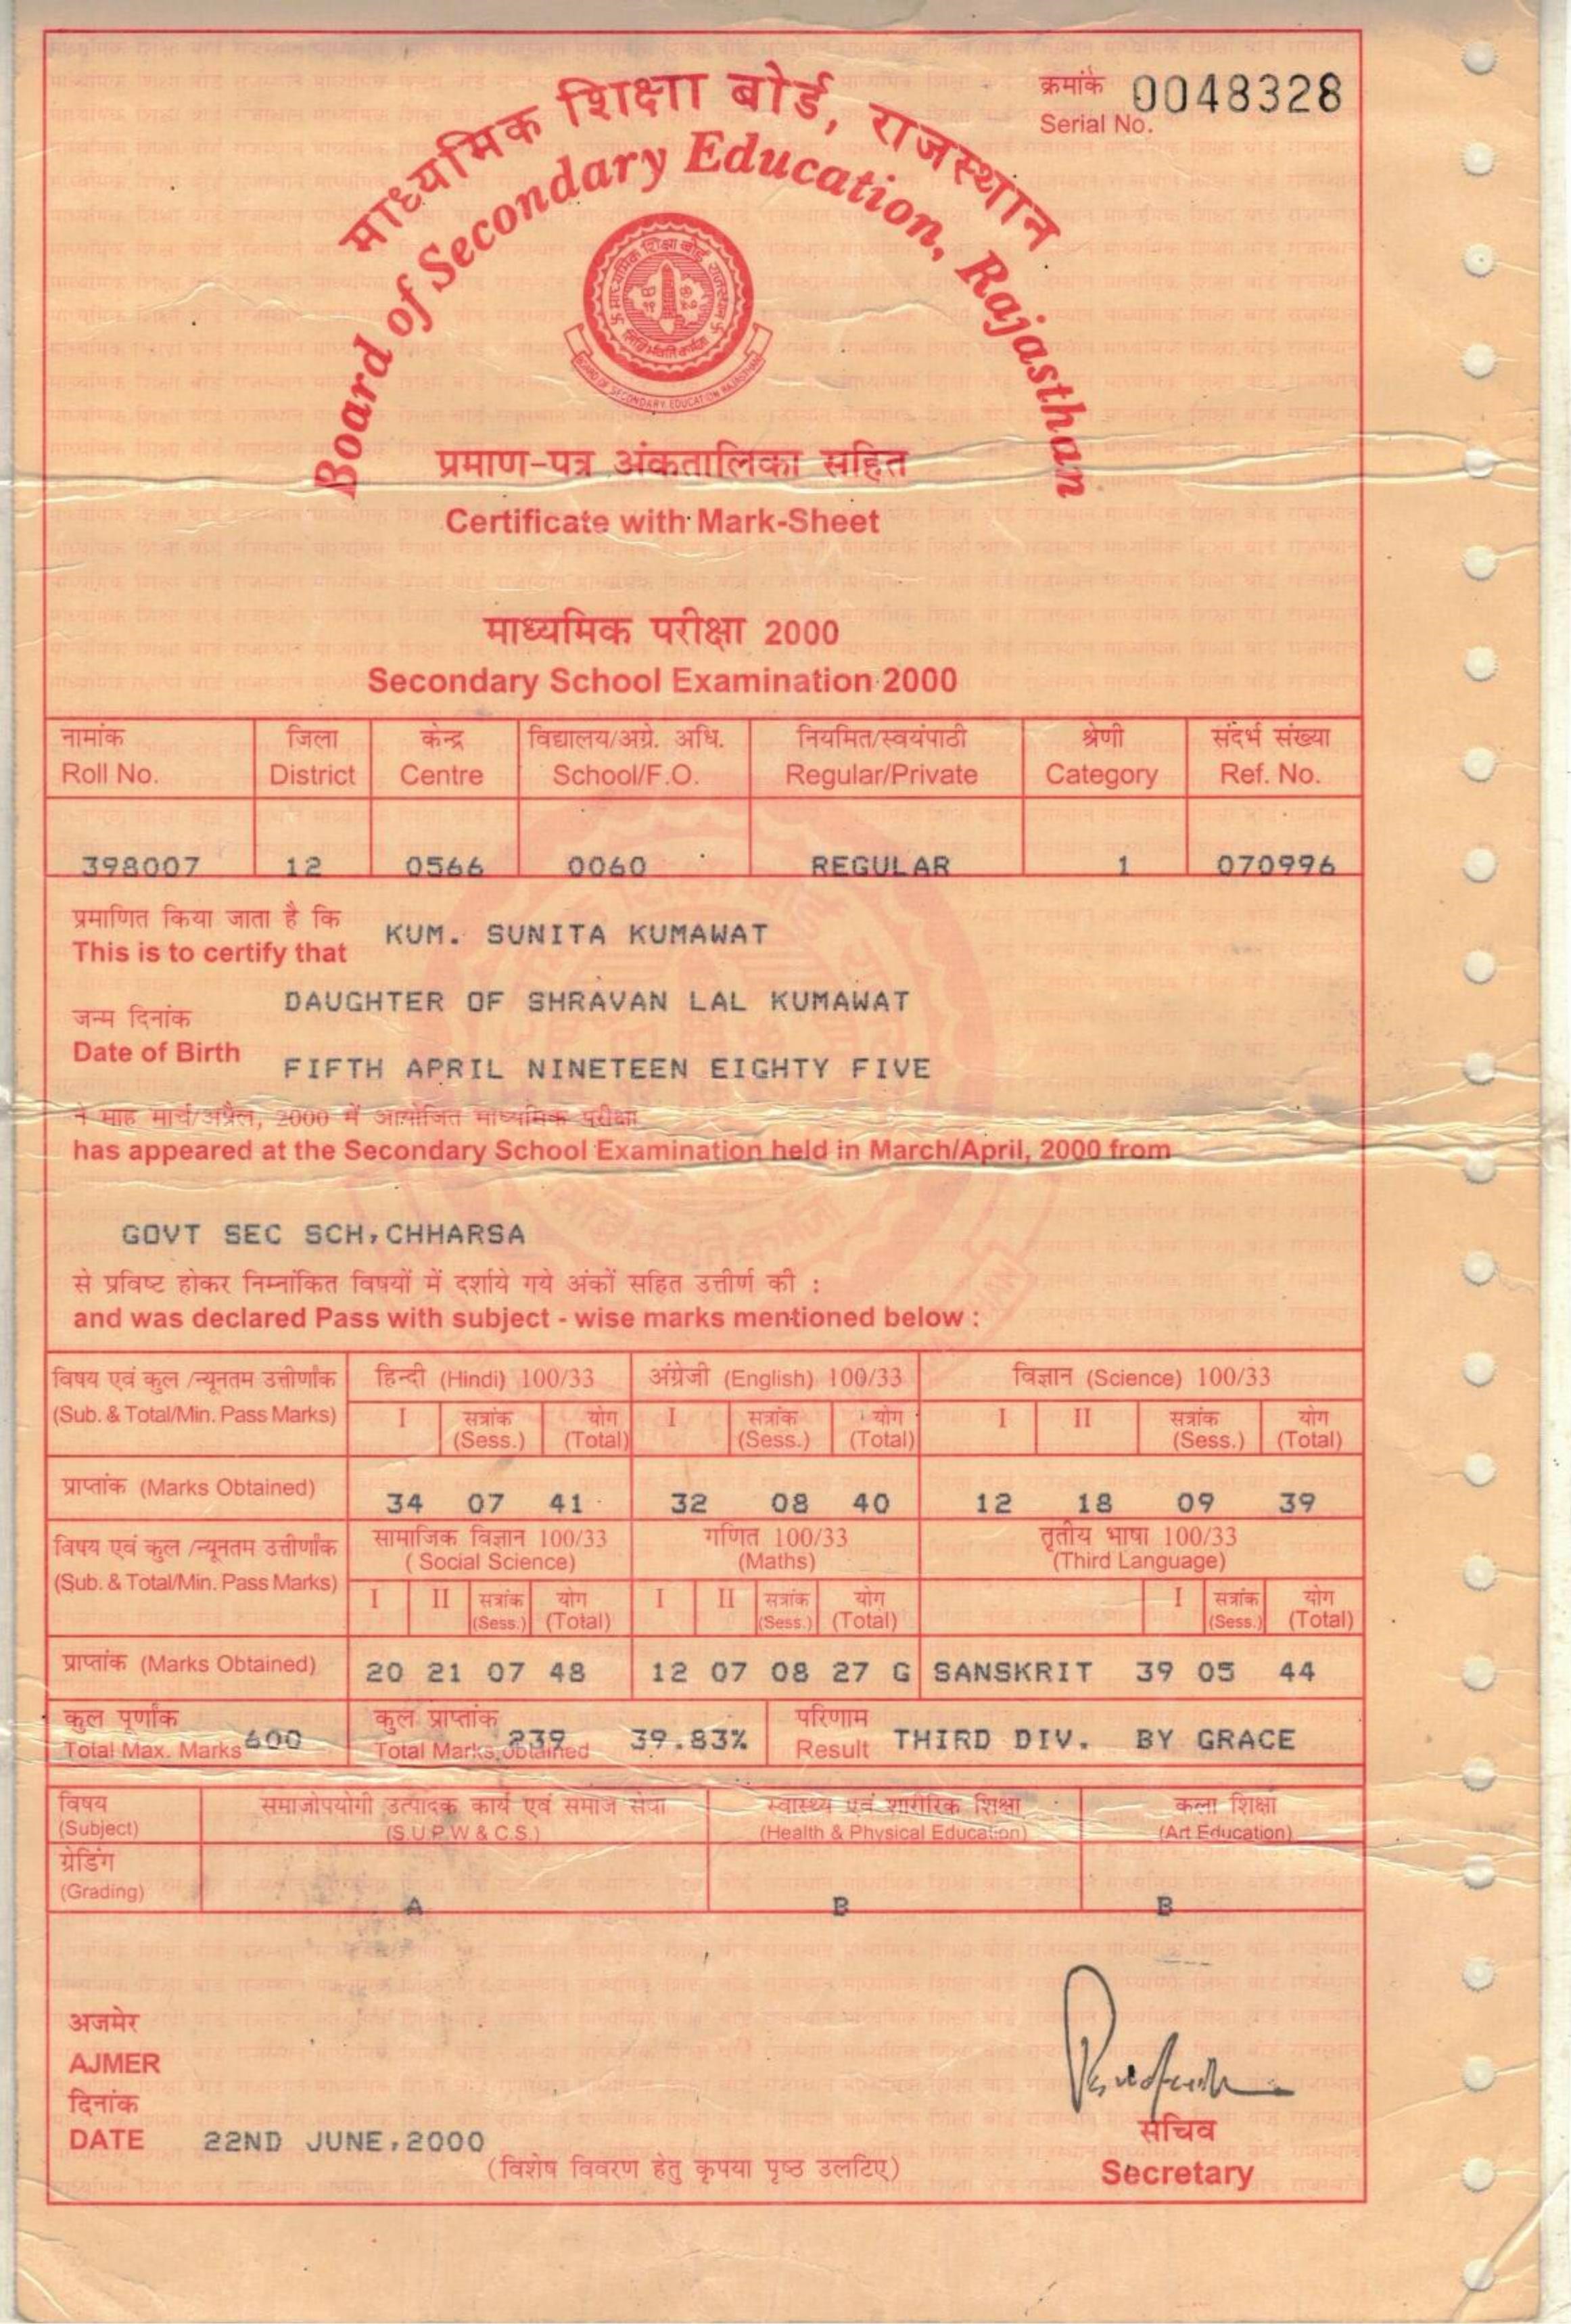 माध्यमिक शिक्षा बोर्ड, राजस्थान
Board of Secondary Education, Rajasthan
क्रमांक
Serial No. 0048328
BOARD OF SECONDARY EDUCATION RAJASTHAN
प्रमाण-पत्र अंकतालिका सहित
Certificate with Mark-Sheet
माध्यमिक परीक्षा 2000
Secondary School Examination 2000
नामांक जिला केन्द्र विद्यालय/अग्रे. अधि. नियमित/स्वयंपाठी श्रेणी संदर्भ संख्या
Roll No. District Centre School/F.O. Regular/Private Category Ref. No.
398007 12 0566 0060 REGULAR 1 070996
प्रमाणित किया जाता है कि
This is to certify that KUM. SUNITA KUMAWAT
DAUGHTER OF SHRAVAN LAL KUMAWAT
जन्म दिनांक
Date of Birth
FIFTH APRIL NINETEEN EIGHTY FIVE
ने माह मार्च/अप्रैल, 2000 में आयोजित माध्यमिक परीक्षा
has appeared at the Secondary School Examination held in March/April, 2000 from
GOVT SEC SCH,CHHARSA
से प्रविष्ट होकर निम्नांकित विषयों में दर्शाये गये अंकों सहित उत्तीर्ण की :
and was declared Pass with subject - wise marks mentioned below :
विषय एवं कुल /न्यूनतम उत्तीर्णांक हिन्दी (Hindi) 100/33 अंग्रेजी (English) 100/33 विज्ञान (Science) 100/33
(Sub. & Total/Min. Pass Marks) I सत्रांक योग I सत्रांक योग I II सत्रांक योग
(Sess.) (Total) (Sess.) (Total) (Sess.) (Total)
प्राप्तांक (Marks Obtained) 34 07 41 32 08 40 12 18 09 39
विषय एवं कुल /न्यूनतम उत्तीर्णांक सामाजिक विज्ञान 100/33 गणित 100/33 तृतीय भाषा 100/33
(Social Science) (Maths) (Third Language)
(Sub. & Total/Min. Pass Marks) I II सत्रांक योग I II सत्रांक योग I सत्रांक योग
(Sess.) (Total) (Sess.) (Total) (Sess.) (Total)
प्राप्तांक (Marks Obtained) 20 21 07 48 12 07 08 27 G SANSKRIT 39 05 44
कुल पूर्णांक कुल प्राप्तांक परिणाम
Total Max. Marks 600 Total Marks obtained 239 39.83% Result THIRD DIV. BY GRACE
विषय समाजोपयोगी उत्पादक कार्य एवं समाज सेवा स्वास्थ्य एवं शारीरिक शिक्षा कला शिक्षा
(Subject) (S.U.P.W & C.S.) (Health & Physical Education) (Art Education)
ग्रेडिंग
(Grading) A B B
अजमेर
AJMER
दिनांक
DATE 22ND JUNE,2000
सचिव
(विशेष विवरण हेतु कृपया पृष्ठ उलटिए)
Secretary